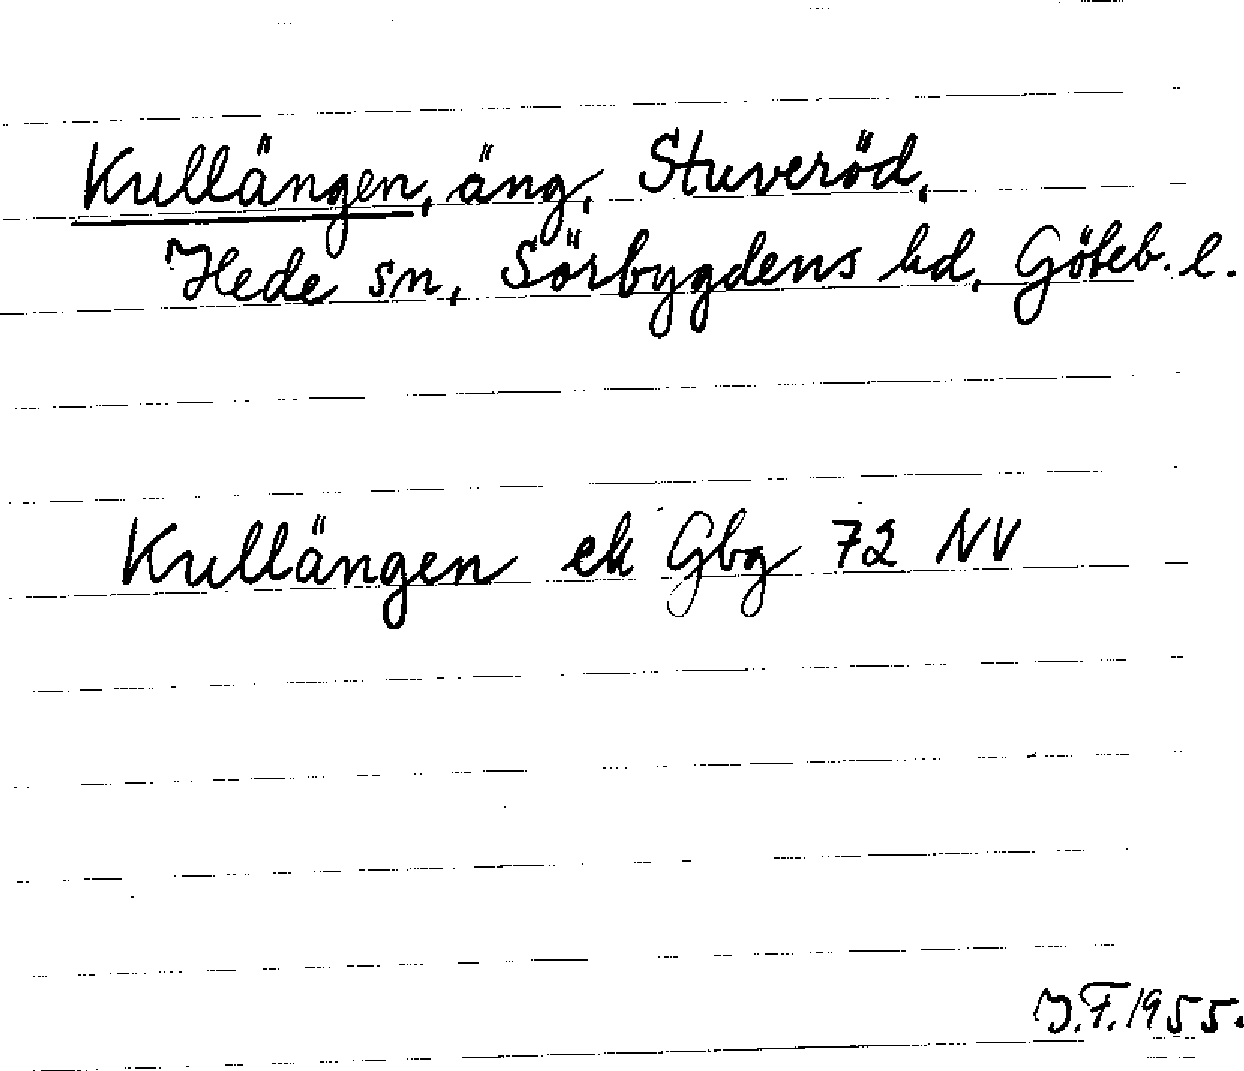 Kullängen, äng, Stuveröd,
Hede sn, Sörbygdens hd, Göteb. l.
Kullängen ek Gbg 72 NV
J.F. 1955.